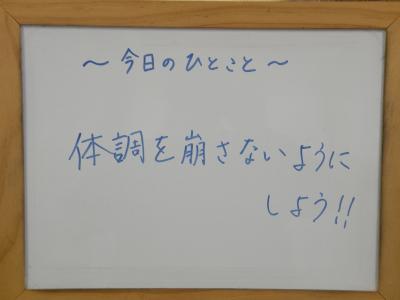 ～今日のひとこと～
体調を崩さないように
しよう!!